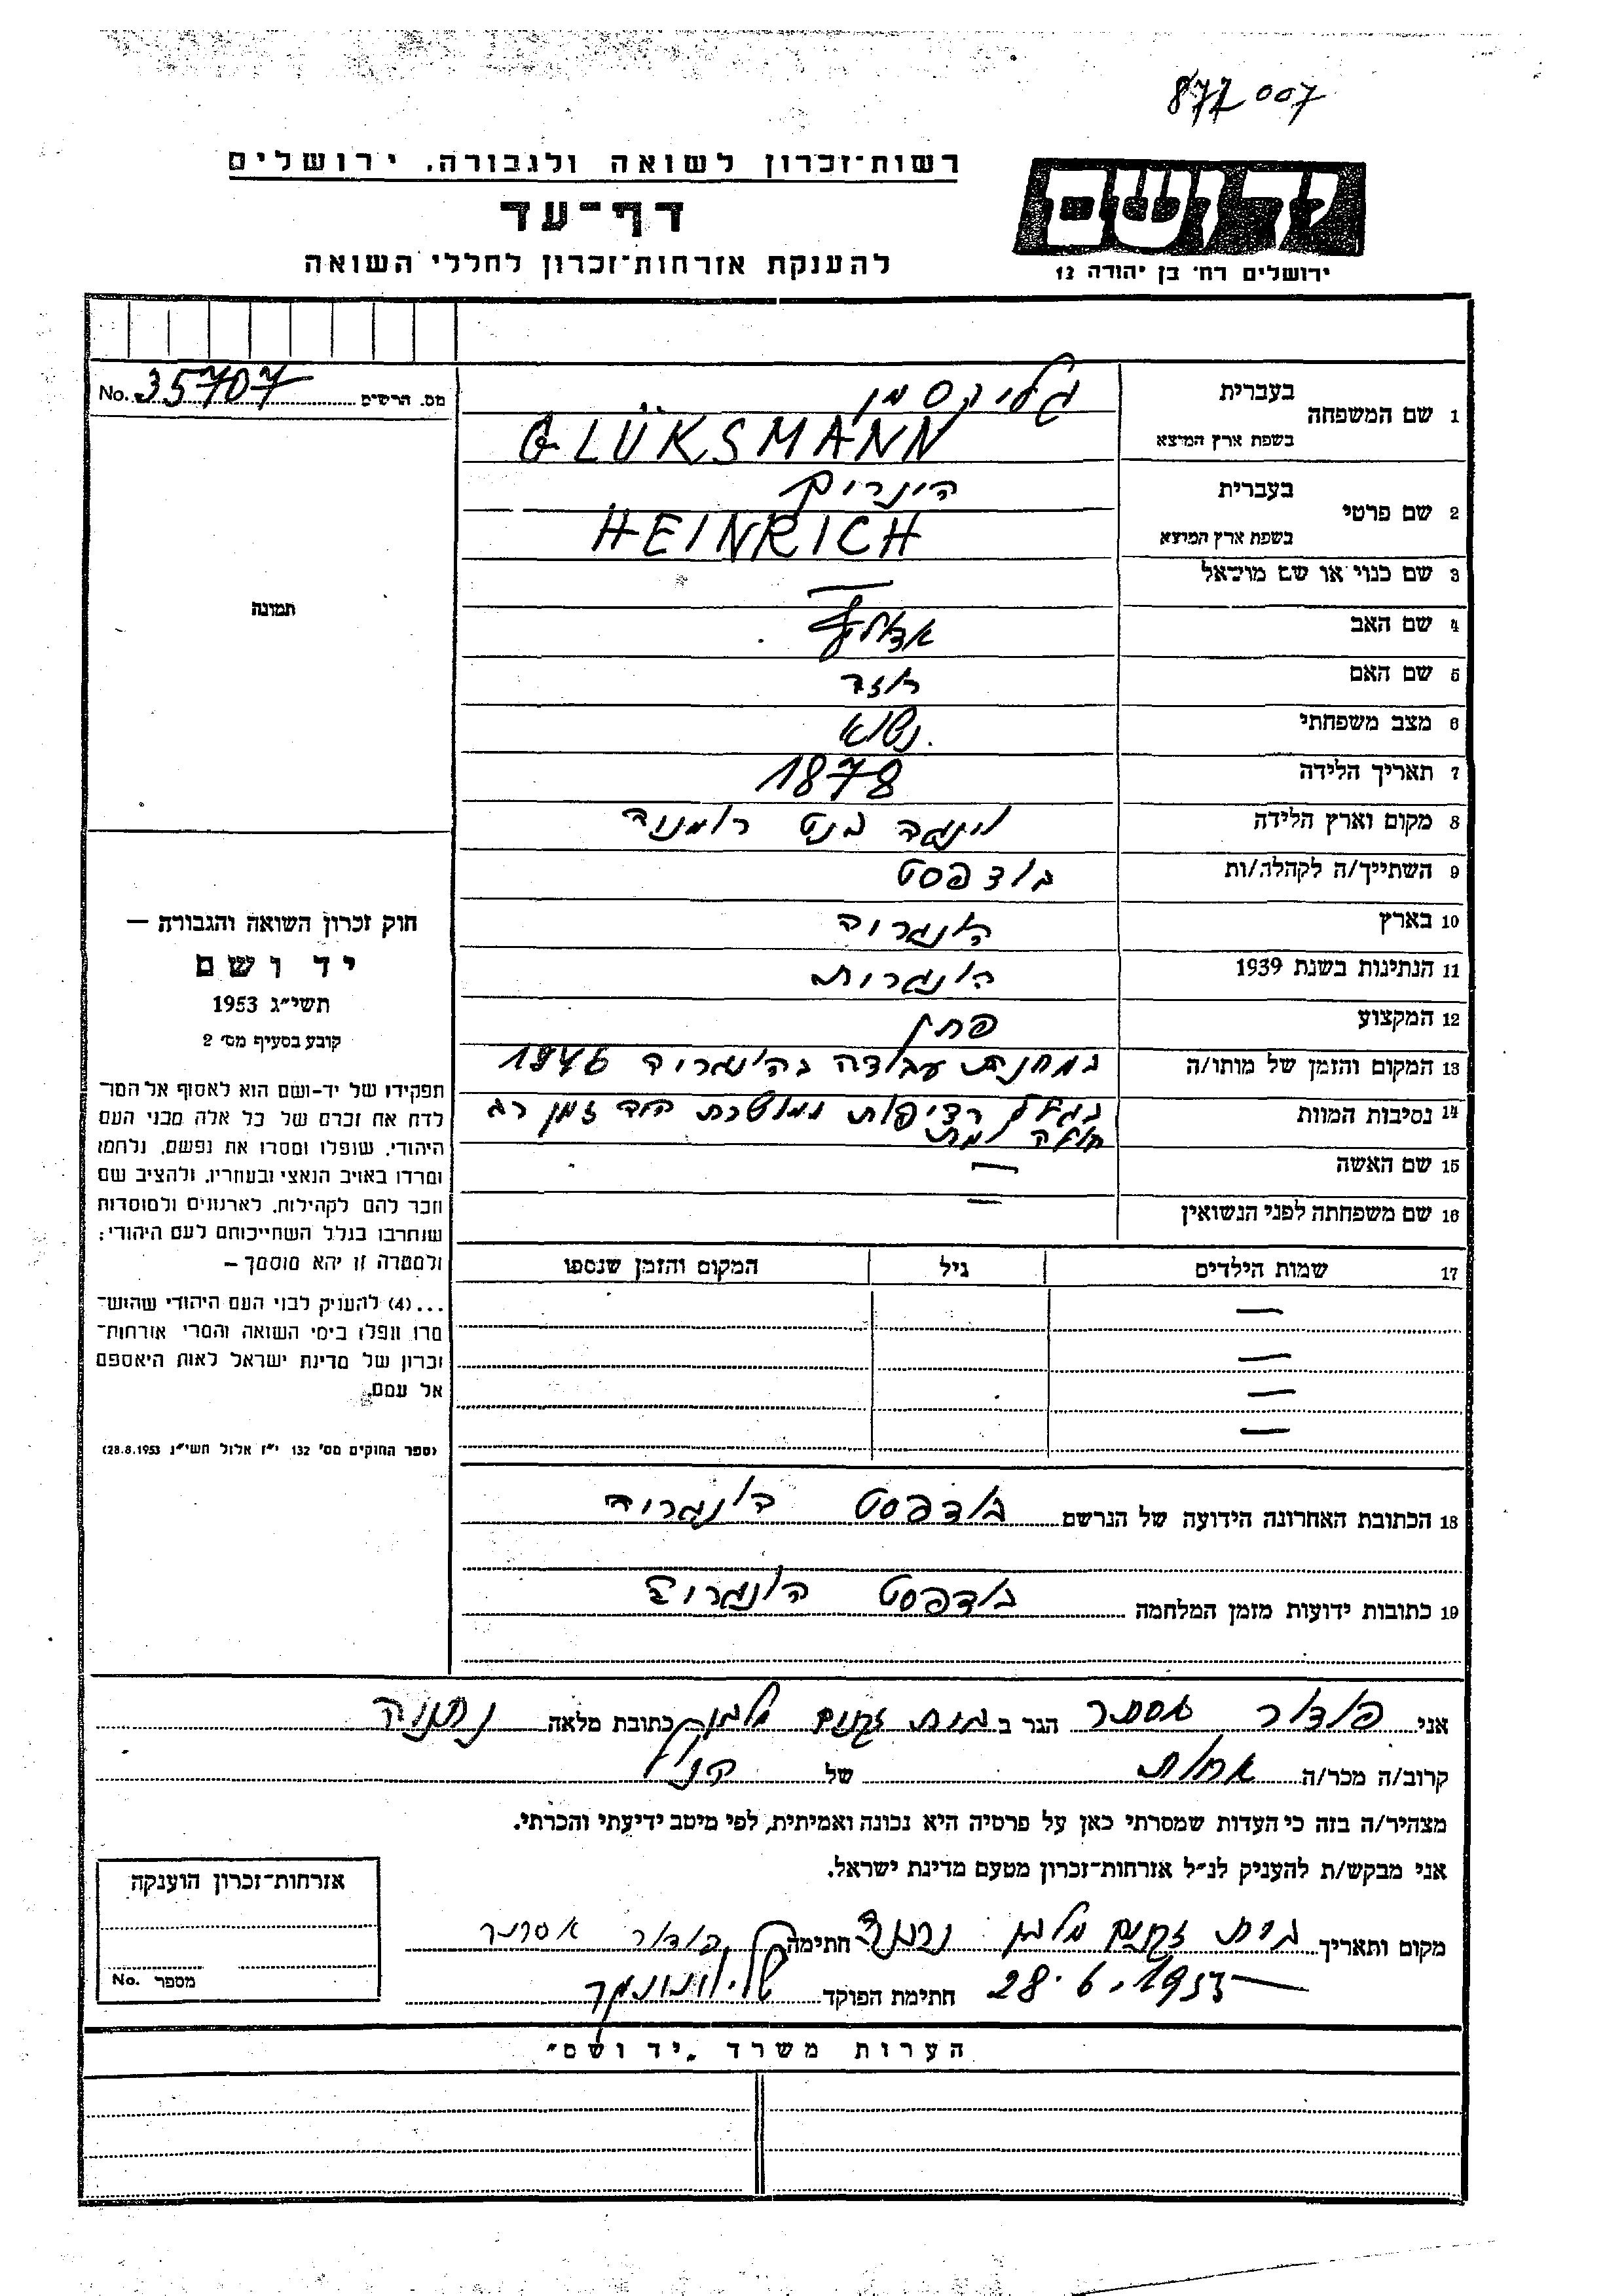 877 007
רשות־זכרון לשואה ולגבורה, ירושלים
דף־עד
להענקת אזרחות־זכרון לחללי השואה
יד ושם
ירושלים רח׳ בן יהודה 12
מס. הרשים No. 35707
1 שם המשפחה בעברית גליקסמן
בשפת ארץ המוצא GLÜKSMANN
2 שם פרטי בעברית היינריך
בשפת ארץ המוצא HEINRICH
3 שם כנוי או שם מושאל —
4 שם האב אדולף
5 שם האם רוזה
6 מצב משפחתי נשוי
7 תאריך הלידה 1878
8 מקום וארץ הלידה רומניה
9 השתייך/ה לקהלה/ות בודפסט
10 בארץ הונגריה
11 הנתינות בשנת 1939 הונגרית
12 המקצוע
13 המקום והזמן של מותו/ה במחנות עבודה בהונגריה
14 נסיבות המוות בגלל רדיפות זמן רב
חולה ומת
15 שם האשה —
16 שם משפחתה לפני הנשואין —
17 שמות הילדים גיל המקום והזמן שנספו
—
—
—
—
18 הכתובת האחרונה הידועה של הנרשם בודפסט הונגריה
19 כתובות ידועות מזמן המלחמה בודפסט הונגריה
תמונה
חוק זכרון השואה והגבורה —
יד ושם
תשי״ג 1953
קובע בסעיף מס׳ 2
תפקידו של יד־ושם הוא לאסוף אל המו־
לדת את זכרם של כל אלה מבני העם
היהודי, שנפלו ומסרו את נפשם, נלחמו
ומרדו באויב הנאצי ובעוזריו, ולהציב שם
וזכר להם לקהילות, לארגונים ולמוסדות
שנחרבו בגלל השתייכותם לעם היהודי;
ולמטרה זו יהא מוסמך —
...(4) להעניק לבני העם היהודי שהוש־
מדו ונפלו בימי השואה והמרי אזרחות־
זכרון של מדינת ישראל לאות היאספם
אל עמם.
(ספר החוקים מס׳ 132 י״ז אלול תשי״ג 28.8.1953)
אני פודור אסתר הגר ב בית זקנים מלבן כתובת מלאה נתניה
קרוב/ה מכר/ה אחות של הנ״ל
מצהיר/ה בזה כי העדות שמסרתי כאן על פרטיה היא נכונה ואמיתית, לפי מיטב ידיעתי והכרתי.
אני מבקש/ת להעניק לנ״ל אזרחות־זכרון מטעם מדינת ישראל.
מקום ותאריך בית זקנים מלבן נתניה חתימה פודור אסתר
28.6.1955 חתימת הפוקד
אזרחות־זכרון הוענקה
מספר No.
הערות משרד „יד ושם״